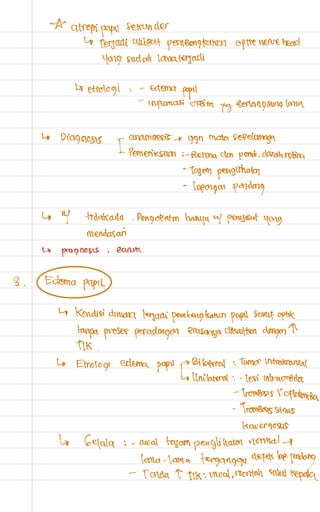 -A atropi papil sekunder
↳ Terjadi akibat pembengkakan optic nerve head
yang sudah lama terjadi
↳ etiologi : - Edema papil
- inflamasi orbita yg berlangsung lama
↳ Diagnosis - anamnesis → ggn mata sebelumnya
- Pemeriksaan : - Retina dan pemb. darah retina
- Tajam penglihatan
- lapangan pandang
↳ tidak ada. Pengobatan hanya u/ penyakit yang
mendasari
↳ prognosis : Buruk
8. Edema papil
↳ Kondisi dimana terjadi pembengkakan papil saraf optik
tanpa proses peradangan biasanya dikaitkan dengan ↑
TIK
↳ Etiologi edema papil → Bilateral : Tumor intrakranial
↳ Unilateral : - lesi intraorbita
- Trombosis V. oftalmika
- Trombosis sinus
kavernosus
↳ Gejala : - awal tajam penglihatan normal →
lama-lama terganggu defek lap. pandang
- Tanda ↑ TIK : mual, muntah sakit kepala